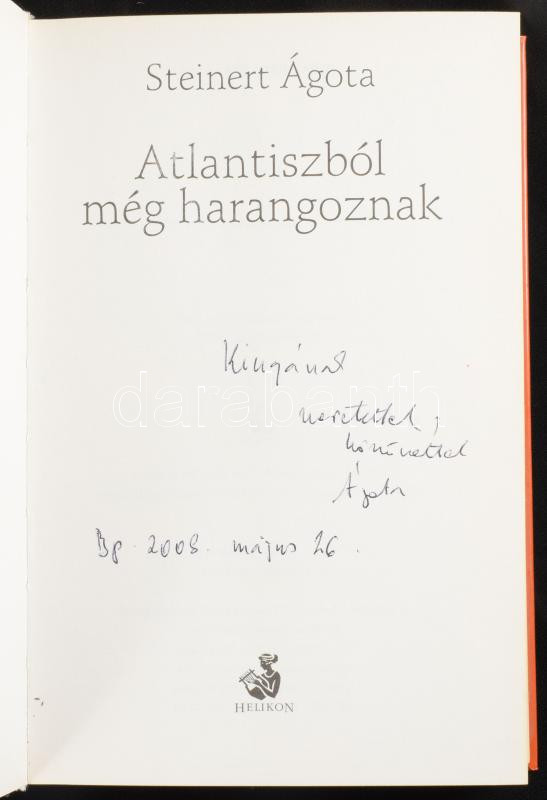 Steinert Ágota
Atlantiszból
még harangoznak
Kingának
darabanth
szeretettel,
köszönettel
Ágota
Bp. 2008. május 26.
HELIKON